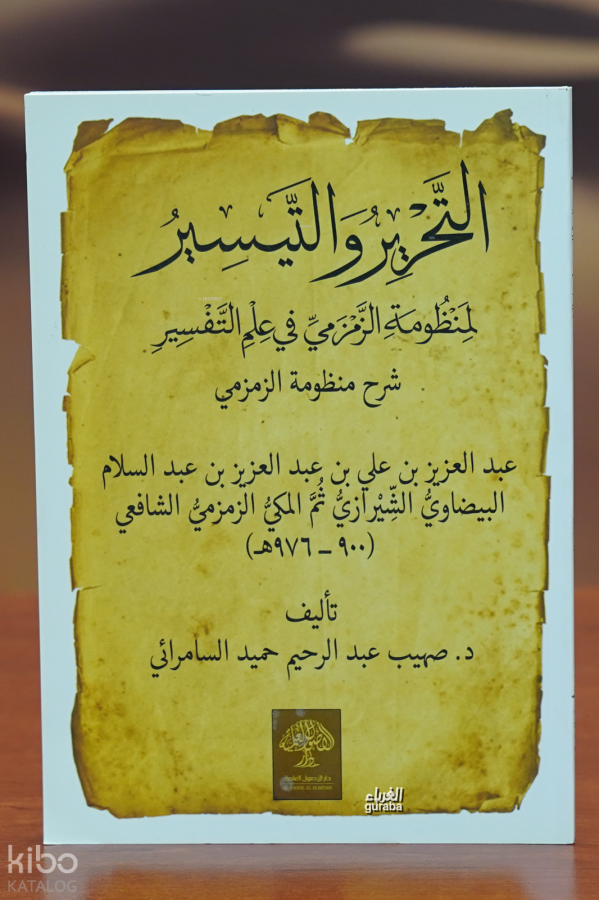 التَّحْرِيرُ وَالتَّيسِيرُ
لِمَنْظُومَةِ الزَّمْزَمِيِّ فِي عِلْمِ التَّفْسِيرِ
شرح منظومة الزمزمي
عبد العزيز بن علي بن عبد العزيز بن عبد السلام
البيضاويُّ الشِّيْرازيُّ ثُمَّ المكيُّ الزمزميُّ الشافعي
(٩٠٠ – ٩٧٦هـ)
تأليف
د. صهيب عبد الرحيم حميد السامرائي
دار الأصول العلمية
الغرباء
guraba
kibo
KATALOG